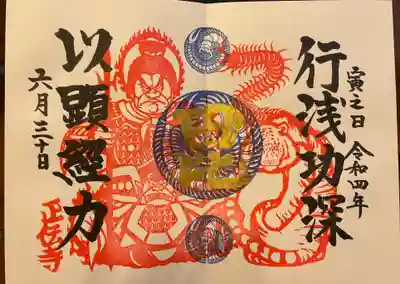 寅之日 令和四年
行浅功深
以顕經力
六月三十日
正伝寺